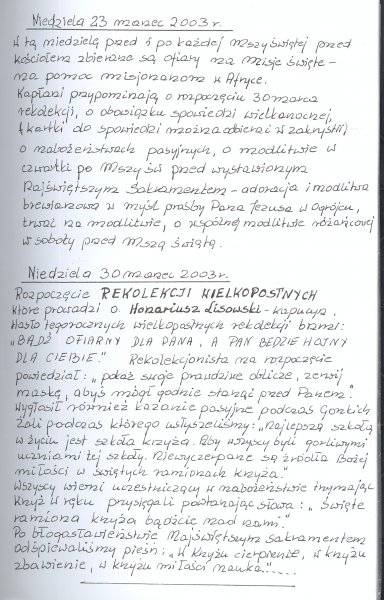 Niedziela 23 marzec 2003r.
W tą niedzielę przed i po każdej Mszy świętej przed
kościołem zbierane są ofiary na misje święte -
na pomoc misjonarzom w Afryce.
Kapłani przypominają o rozpoczęciu 30 marca
rekolekcji, o obowiązku spowiedzi wielkanocnej,
(kartki do spowiedzi można odbierać w zakrystii)
o nabożeństwach pasyjnych, o modlitwie w
czwartki po Mszy św przed wystawionym
Najświętszym Sakramentem - adoracja i modlitwa
brewiarzowa w myśl prośby Pana Jezusa w Ogrójcu,
trwać na modlitwie, o wspólnej modlitwie różańcowej
w soboty przed Mszą świętą.
Niedziela 30 marzec 2003r.
Rozpoczęcie REKOLEKCJI WIELKOPOSTNYCH
które prowadzi o. Honoriusz Lisowski - kapucyn.
Hasło tegorocznych wielkopostnych rekolekcji brzmi:
"BĄDŹ OFIARNY DLA PANA, A PAN BĘDZIE HOJNY
DLA CIEBIE." Rekolekcjonista na rozpoczęcie
powiedział: "pokaż swoje prawdziwe oblicze, zerwij
maskę, abyś mógł godnie stanąć przed Panem".
Wygłosił również kazanie pasyjne podczas Gorzkich
Żali podczas którego usłyszeliśmy: "Najlepszą szkołą
w życiu jest szkoła krzyża. Aby wszyscy byli gorliwymi
uczniami tej szkoły. Niewyczerpane są źródła Bożej
miłości w świętych ramionach krzyża."
Wszyscy wierni uczestniczący w nabożeństwie trzymając
krzyż w ręku przysięgali powtarzając słowa: "Święte
ramiona krzyża bądźcie nad nami."
Po błogosławieństwie Najświętszym Sakramentem
odśpiewaliśmy pieśń: "W krzyżu cierpienie, w krzyżu
zbawienie, w krzyżu miłości nauka."....